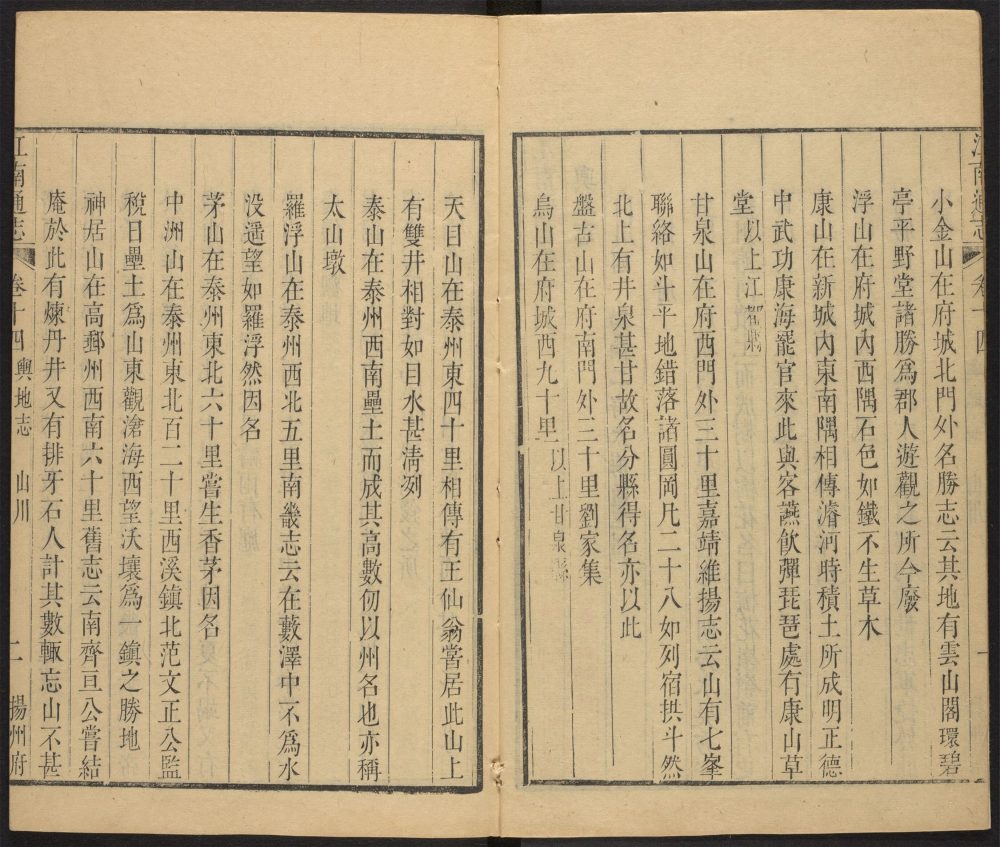 小金山在府城北門外名勝志云其地有雲山閣環碧
亭平野堂諸勝爲郡人遊觀之所今廢
浮山在府城內西隅石色如鐵不生草木
康山在新城內東南隅相傳濬河時積土所成明正德
中武功康海罷官來此與客燕飲彈琵琶處有康山草
堂以上江都縣
甘泉山在府西門外三十里嘉靖維揚志云山有七峯
聯絡如斗平地錯落諸圓岡凡二十八如列宿拱斗然
北上有井泉甚甘故名分縣得名亦以此
盤古山在府南門外三十里劉家集
烏山在府城西九十里以上甘泉縣
天目山在泰州東四十里相傳有王仙翁嘗居此山上
有雙井相對如目水甚淸冽
泰山在泰州西南壘土而成其高數仞以州名也亦稱
太山墩
羅浮山在泰州西北五里南畿志云在藪澤中不爲水
没遥望如羅浮然因名
茅山在泰州東北六十里嘗生香茅因名
中洲山在泰州東北百二十里西溪鎭北范文正公監
稅日壘土爲山東觀滄海西望沃壤爲一鎭之勝地
神居山在高郵州西南六十里舊志云南齊亘公嘗結
庵於此有煉丹井又有排牙石人計其數輒忘山不甚
江南通志 卷十四 輿地志 山川 二 揚州府